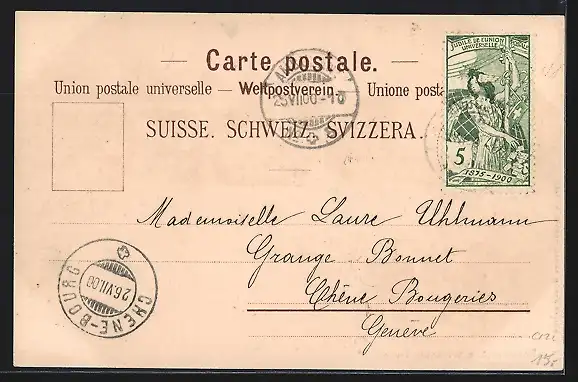 — Carte postale. —
Union postale universelle — Weltpostverein. — Unione posta
SUISSE. SCHWEIZ. SVIZZERA.
JUBILÉ DE L'UNION POSTALE
UNIVERSELLE
5
1875-1900
25 VII 00
Mademoiselle Laure Uhlmann
Grange Bonnet
Chêne Bougeries
Genève
CHÊNE-BOURG
26 VII 00
15.